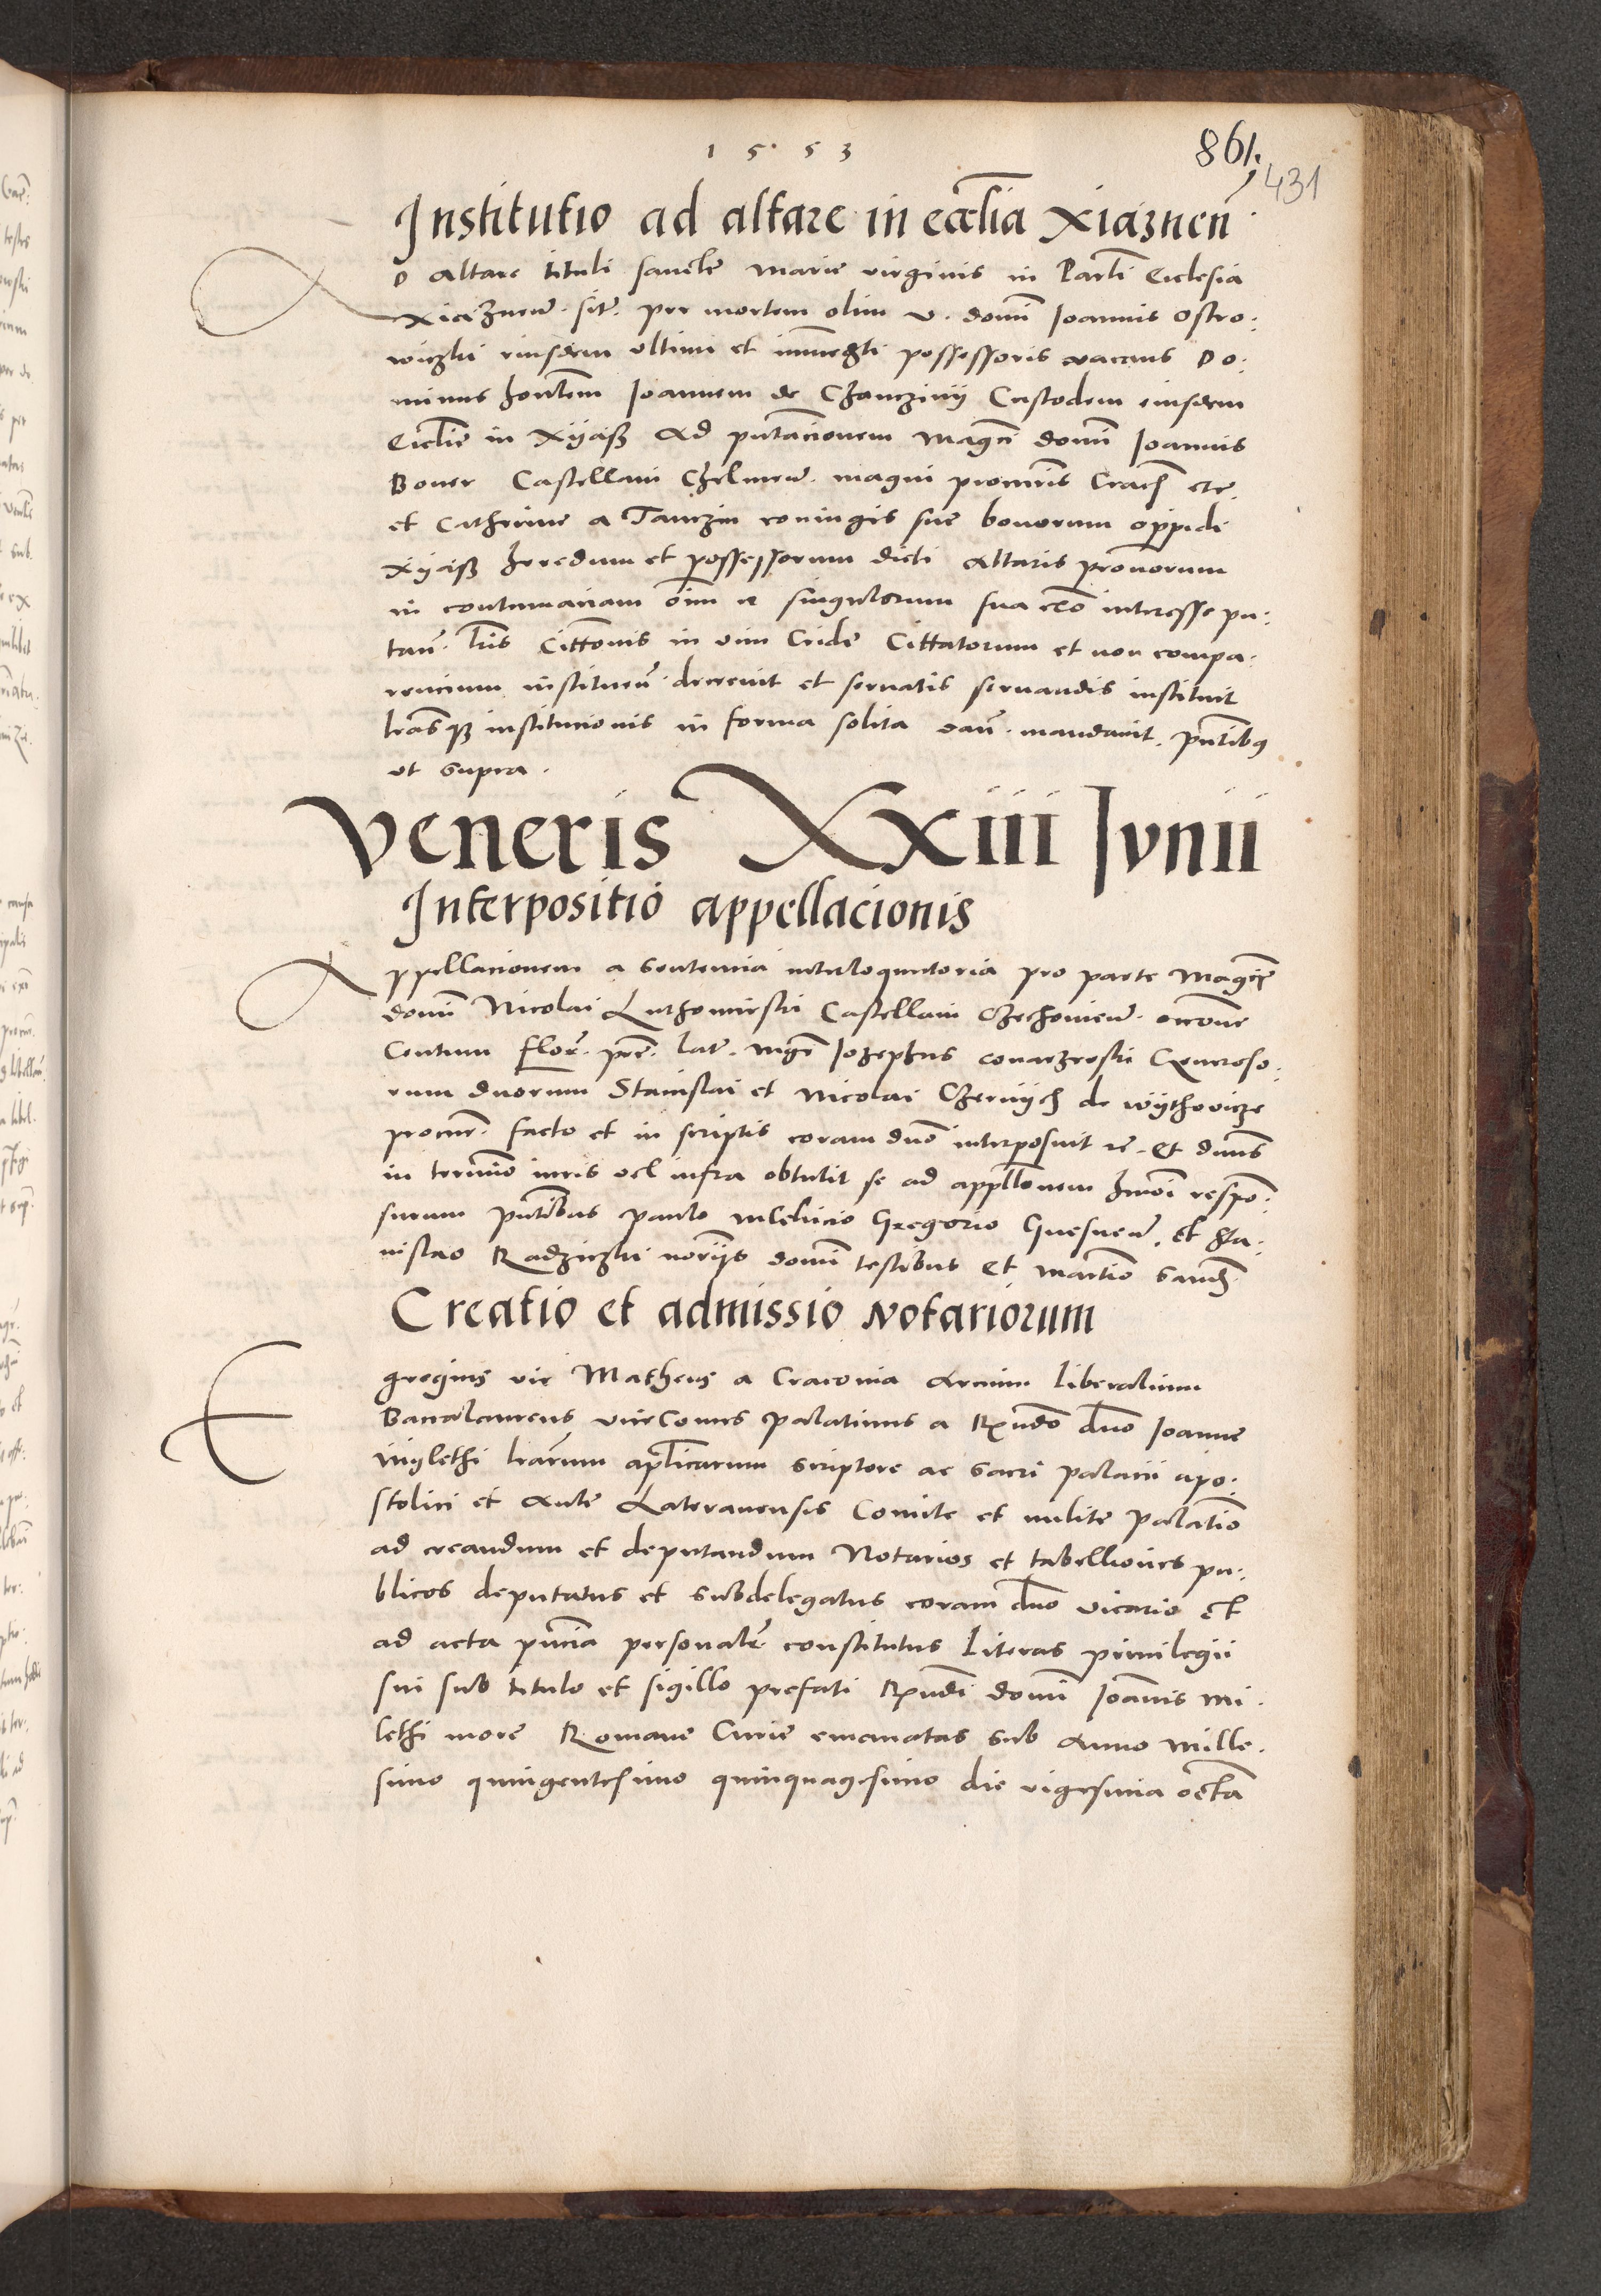 1553
861.
431
Institutio ad altare in ecclia Xiażnen
AD Altare tituli sancte Marie virginis in Parli Ecclesia
Xiażnen. sit. per mortem olim v. domi Ioannis Ostro:
wiczki eiusdem ultimi et immedti possessoris vacans Do:
minus honlem Ioannem de Chanczini Custodem eiusdem
Ecclie in Xyasz Ad pntacionem Magci domi Ioannis
Boner Castellani Chelmen. magni procuris Cracn etc.
et Catherine a Tanczin coniugis sue bonorum oppidi
Xyasz heredum et possessorum dicti Altaris pronorum
in contumaciam oim et singulorum sua clo interesse pu:
tan. lris Cittonis in vim Cride Cittatorum et non compa:
rencium instituen. decrevit et servatis servandis instituit
lrasq3 institucionis in forma solita dan. mandavit. pntibus
ut supra.
Veneris XXiii Ivnii
Interpositio appellacionis
Appellacionem a sentencia interloquutoria pro parte Magci
domi Nicolai Luthomirski Castellani Czechovien. occone
Centum Flor. pre. lat. mgr Iozephus Generoso:
rum duorum Stanislai et Nicolai Czernijch de Wythovicze
procur. facto et in scriptis coram dno interposuit etc. Et dnus
in termino iuris vel infra obtulit se ad appllonem hmoi respon:
surum pntibus paulo Gregorio Gnesnen. et Sta:
nislao Radziczki norijs domi testibus et Martino Sand
Creatio et admissio Notariorum
Egregius vir Matheus a Cracovia Arcium Liberalium
Baccalaureus viceComes palatinus a Rundo dno Ioanne
Mylethi lrarum aplicarum scriptore ac sacri palacii apo:
stolici et Aule Lateranensis Comite et milite palatino
ad creandum et deputandum Notarios et tabelliones pu:
blicos deputatus et subdelegatus coram dno vicario et
ad acta pncia personalr. constitutus Literas privilegii
sui sub titulo et sigillo prefati Rundi domi Ioannis Mi:
lethi more Romane Curie emanatas sub Anno Mille:
simo quingentesimo quinquagesimo die vigesima octa